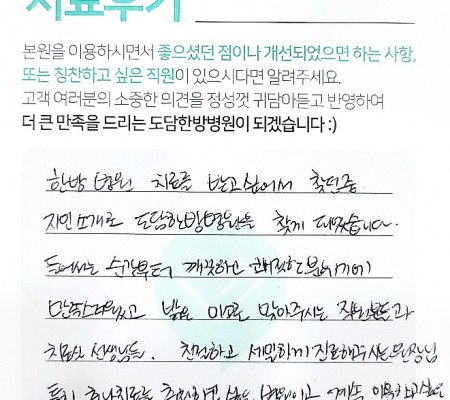 치료후기
본원을 이용하시면서 좋으셨던 점이나 개선되었으면 하는 사항,
또는 칭찬하고 싶은 직원이 있으시다면 알려주세요.
고객 여러분의 소중한 의견을 정성껏 귀담아듣고 반영하여
더 큰 만족을 드리는 도담한방병원이 되겠습니다 :)
한방 병원 치료를 받고 싶어서 찾던중
지인 소개로 도담한방병원을 찾게 되었습니다.
들어서는 순간부터 깨끗하고 분위기에
만족스러웠고 밝은 미소로 맞아주시는 직원분들과
치료사 선생님들. 친절하고 세밀하게 진료해주시는 원장님
치료를 병원이고 계속